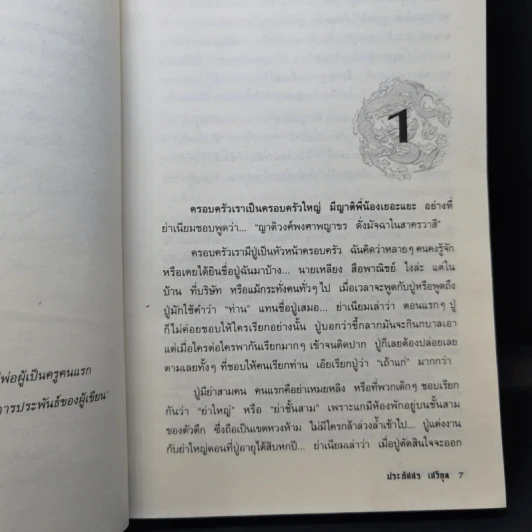 พ่อผู้เป็นครูคนแรก
การประพันธ์ของผู้เขียน
1
ครอบครัวเราเป็นครอบครัวใหญ่ มีญาติพี่น้องเยอะแยะ อย่างที่
ย่าเนียมชอบพูดว่า... "ญาติวงศ์พงศาพญาขร ดั่งมัจฉาในสาครวาสี"
ครอบครัวเรามีปู่เป็นหัวหน้าครอบครัว ฉันคิดว่าหลายๆ คนคงรู้จัก
หรือเคยได้ยินชื่อปู่ฉันมาบ้าง... นายเหลียง สือพาณิชย์ ไงล่ะ แต่ใน
บ้าน ที่บริษัท หรือแม้กระทั่งคนทั่วๆ ไป เมื่อเวลาจะพูดกับปู่หรือพูดถึง
ปู่มักใช้คำว่า "ท่าน" แทนชื่อปู่เสมอ... ย่าเนียมเล่าว่า ตอนแรกๆ ปู่
ก็ไม่ค่อยชอบให้ใครเรียกอย่างนั้น ปู่บอกว่าขี้กลากมันจะกินกบาลเอา
แต่เมื่อใครต่อใครพากันเรียกมากๆ เข้าจนติดปาก ปู่ก็เลยต้องปล่อยเลย
ตามเลยทั้งๆ ที่ชอบให้คนเรียกท่าน เอ๊ยเรียกปู่ว่า "เถ้าแก่" มากกว่า
ปู่มีย่าสามคน คนแรกคือย่าเหมยหลิง หรือที่พวกเด็กๆ ชอบเรียก
กันว่า "ย่าใหญ่" หรือ "ย่าชั้นสาม" เพราะแกมีห้องพักอยู่บนชั้นสาม
ของตัวตึก ซึ่งถือเป็นเขตหวงห้าม ไม่มีใครกล้าล่วงล้ำเข้าไป... ปู่แต่งงาน
กับย่าใหญ่ตอนที่ปู่อายุได้สิบหกปี... ย่าเนียมเล่าว่า เมื่อปู่ตัดสินใจจะออก
ประภัสสร เสวิกุล 7